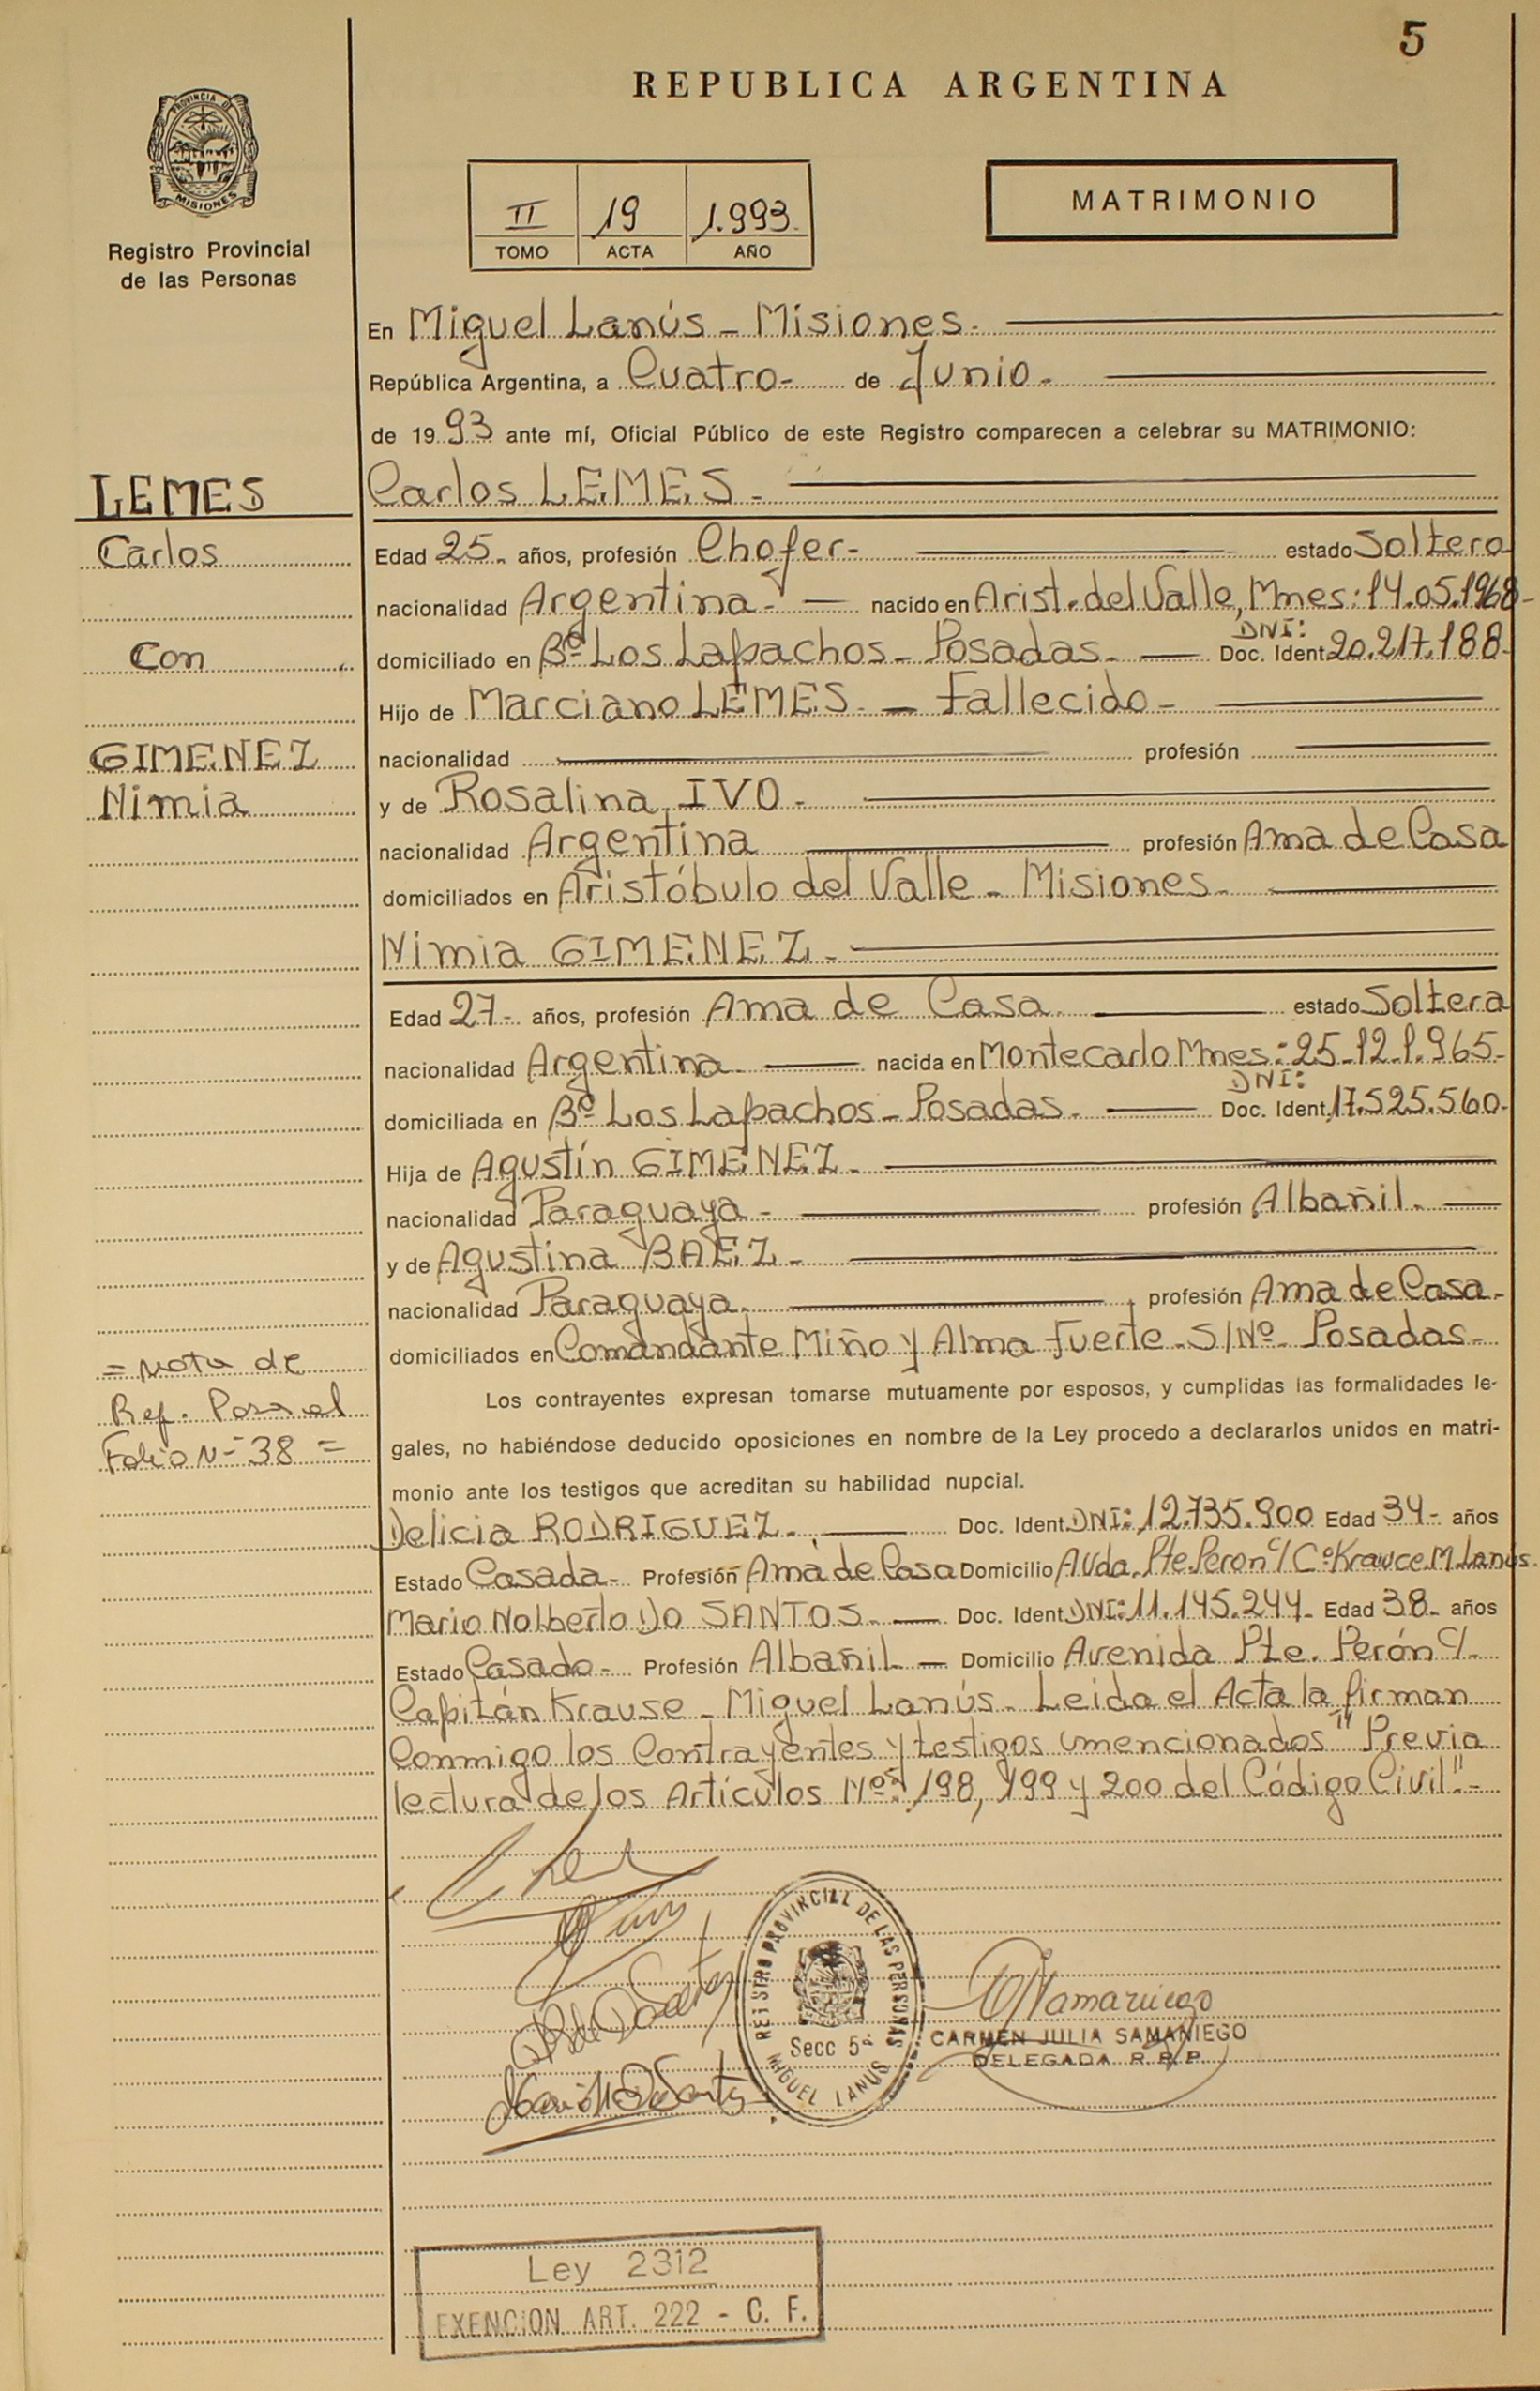 5
REPUBLICA ARGENTINA
PROVINCIA DE
MISIONES
Registro Provincial
de las Personas
II 19 1.993
TOMO ACTA AÑO
MATRIMONIO
En Miguel Lanús - Misiones.
República Argentina, a Cuatro- de Junio-
de 1993 ante mí, Oficial Público de este Registro comparecen a celebrar su MATRIMONIO:
LEMES
Carlos
Con
GIMENEZ
Nimia
Carlos LEMES-
Edad 25- años, profesión Chofer- estado Soltero
nacionalidad Argentina- nacido en Arist. del Valle, Mnes: 14.05.1968-
domiciliado en Bº Los Lapachos- Posadas- Doc. Ident DNI: 20.217.188-
Hijo de Marciano LEMES - Fallecido-
nacionalidad profesión
y de Rosalina IVO-
nacionalidad Argentina profesión Ama de Casa
domiciliados en Aristóbulo del Valle - Misiones-
Nimia GIMENEZ-
Edad 27- años, profesión Ama de Casa estado Soltera
nacionalidad Argentina nacida en Montecarlo Mnes: 25-12-1.965-
domiciliada en Bº Los Lapachos- Posadas- Doc. Ident. DNI: 17.525.560-
Hija de Agustín GIMENEZ-
nacionalidad Paraguaya- profesión Albañil-
y de Agustina BAEZ-
nacionalidad Paraguaya. profesión Ama de Casa-
domiciliados en Comandante Miño y Alma Fuerte- S/Nº- Posadas-
= Nota de
Ref. Pasa al
Folio Nº 38 =
Los contrayentes expresan tomarse mutuamente por esposos, y cumplidas las formalidades le-
gales, no habiéndose deducido oposiciones en nombre de la Ley procedo a declararlos unidos en matri-
monio ante los testigos que acreditan su habilidad nupcial.
Delicia RODRIGUEZ- Doc. Ident. DNI: 12.735.900 Edad 34- años
Estado Casada- Profesión Ama de Casa Domicilio Avda. Pte. Peron c/ Cº Krauce M. Lanús.
Mario Nolberto DO SANTOS- Doc. Ident. DNI: 11.145.244- Edad 38- años
Estado Casado- Profesión Albañil- Domicilio Avenida Pte. Perón c/.
Capitán Krause - Miguel Lanús- Leida el Acta la firman
Conmigo los Contrayentes y testigos mencionados "Previa
lectura de los Artículos Nos. 198, 199 y 200 del Código Civil"-
REGISTRO PROVINCIAL DE LAS PERSONAS
Secc 5ª
MIGUEL LANUS
CARMEN JULIA SAMANIEGO
DELEGADA R.P.P.
Ley 2312
EXENCION ART. 222 - C. F.